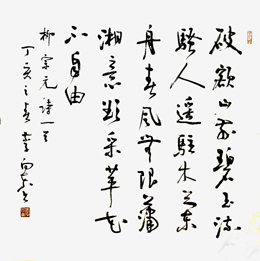 破额山前碧玉流
骚人遥驻木兰
舟春风无限潇
湘意欲采苹花
不自由
柳宗元诗一首
丁亥之春